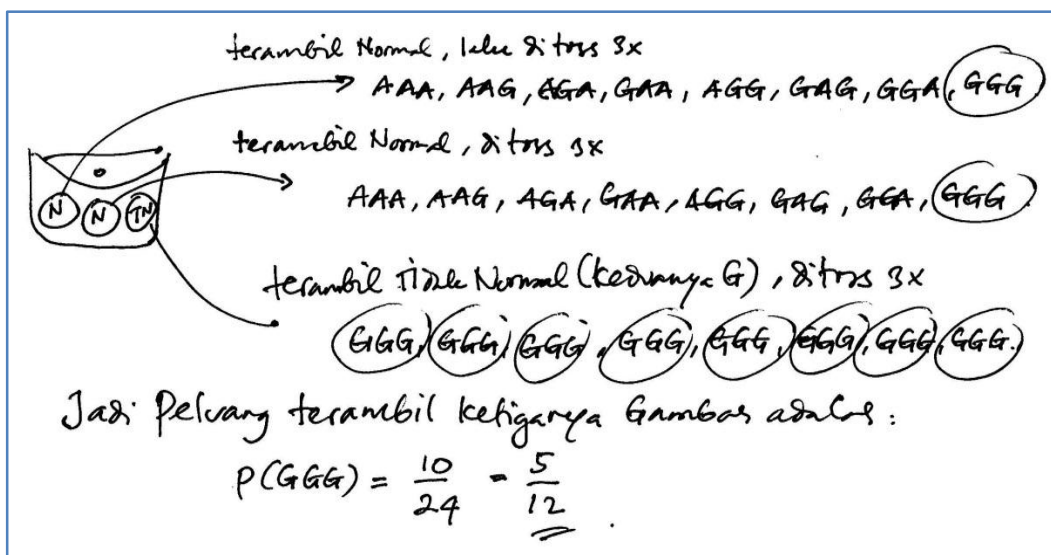 terambil Normal, lalu ditoss 3x
AAA, AAG, AGA, GAA, AGG, GAG, GGA, GGG
terambil Normal, ditoss 3x
AAA, AAG, AGA, GAA, AGG, GAG, GGA, GGG
N N TN
terambil Tidak Normal (keduanya G), ditoss 3x
GGG, GGG, GGG, GGG, GGG, GGG, GGG, GGG.
Jadi Peluang terambil ketiganya Gambar adalah :
P(GGG) = 10/24 = 5/12